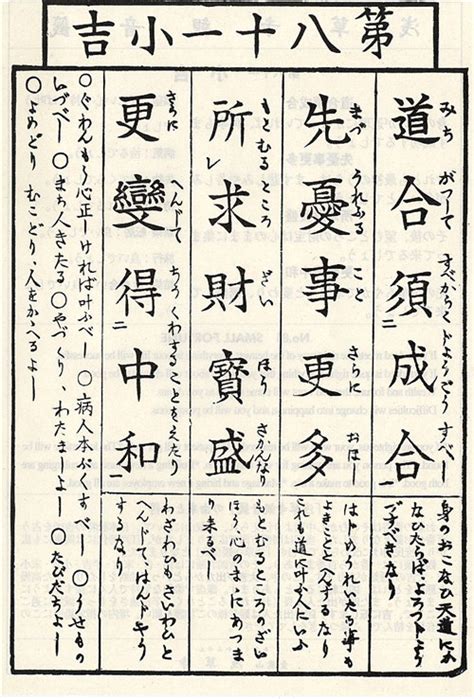 第八十一小吉
道合須成合
みち がつして すべからく じようごうすべ
二 一
先憂事更多
まづ うれふる こと さらに おほし
所求財寶盛
もとむるところ ざい ほう さかんなり
レ
更變得中和
さらに へんじて ちうくわすることをえたり
二 一
身のおこなひ天道にか
なひたらばよろづじよう
べきなり
はじめうれひ
よきことにへんするなり
も道に叶ふ人にいふ
もとむるところのざい
ほう心のまゝにあつま
り来るべし
わざわひもさいわひと
へんじ、はんじやう
するなり
○ぐわんもう心正しければ叶ふべし ○病人本ぶくす ○うせもの
いづべし ○まち人きたる ○やづくり、わたましよし ○たびだちよし
○よめどり むことり、人をかゝへるよし